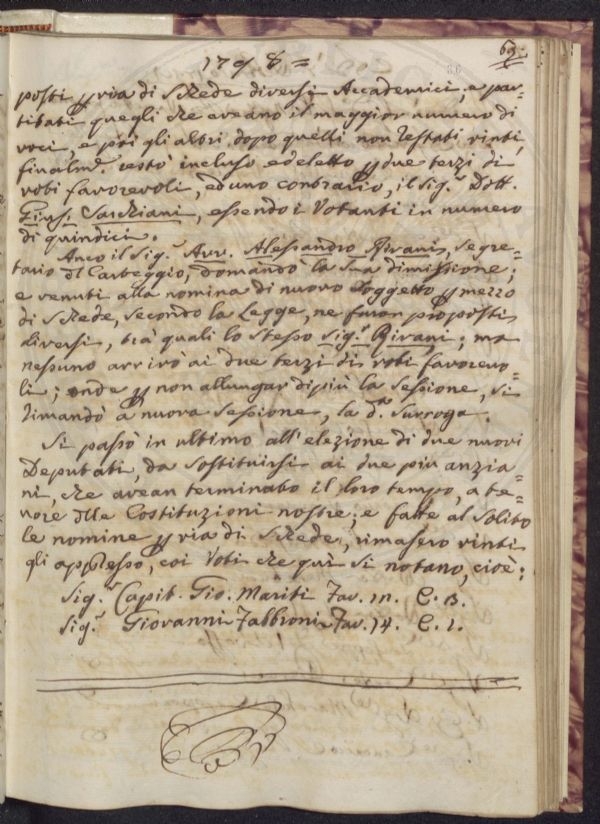 1798=
69.
86
posti p via di Schede diversi Accademici, e par=
titati quegli che aveano il maggior numero di
voci, e poi gli altri dopo quelli non restati vinti,
finalmᵉ. restò incluso ed eletto p due terzi di
voti favorevoli, ed uno contrario, il Sig.ʳ Dott.
Gius. Sarchiani, essendo i Votanti in numero
di quindici.
Anco il Sig.ʳ Avv. Alessandro Rivani, Segre=
tario dl Carteggio, domandò la sua dimissione;
e venuti alla nomina di nuovo Soggetto p mezzo
di Schede, secondo la Legge, ne furon proposti
diversi, trà quali lo stesso sig.ʳ Rivani; ma
nessuno arrivò ai due terzi di voti favorevo=
li; onde p non allungar di più la sessione, si
rimandò a nuova sessione, la dᵃ. surroga.
Si passò in ultimo all'elezione di due nuovi
Deputati, da sostituirsi ai due più anzia=
ni, che avean terminato il loro tempo, a te=
nore dlle Costituzioni nostre; e fatte al solito
le nomine p via di Schede, rimasero vinti
gli appresso, coi Voti che quì si notano, cioè:
Sig.ʳ Capit. Gio. Mariti Fav. 12. C. 3.
Sig.ʳ Giovanni Fabbroni Fav. 14. C. 1.